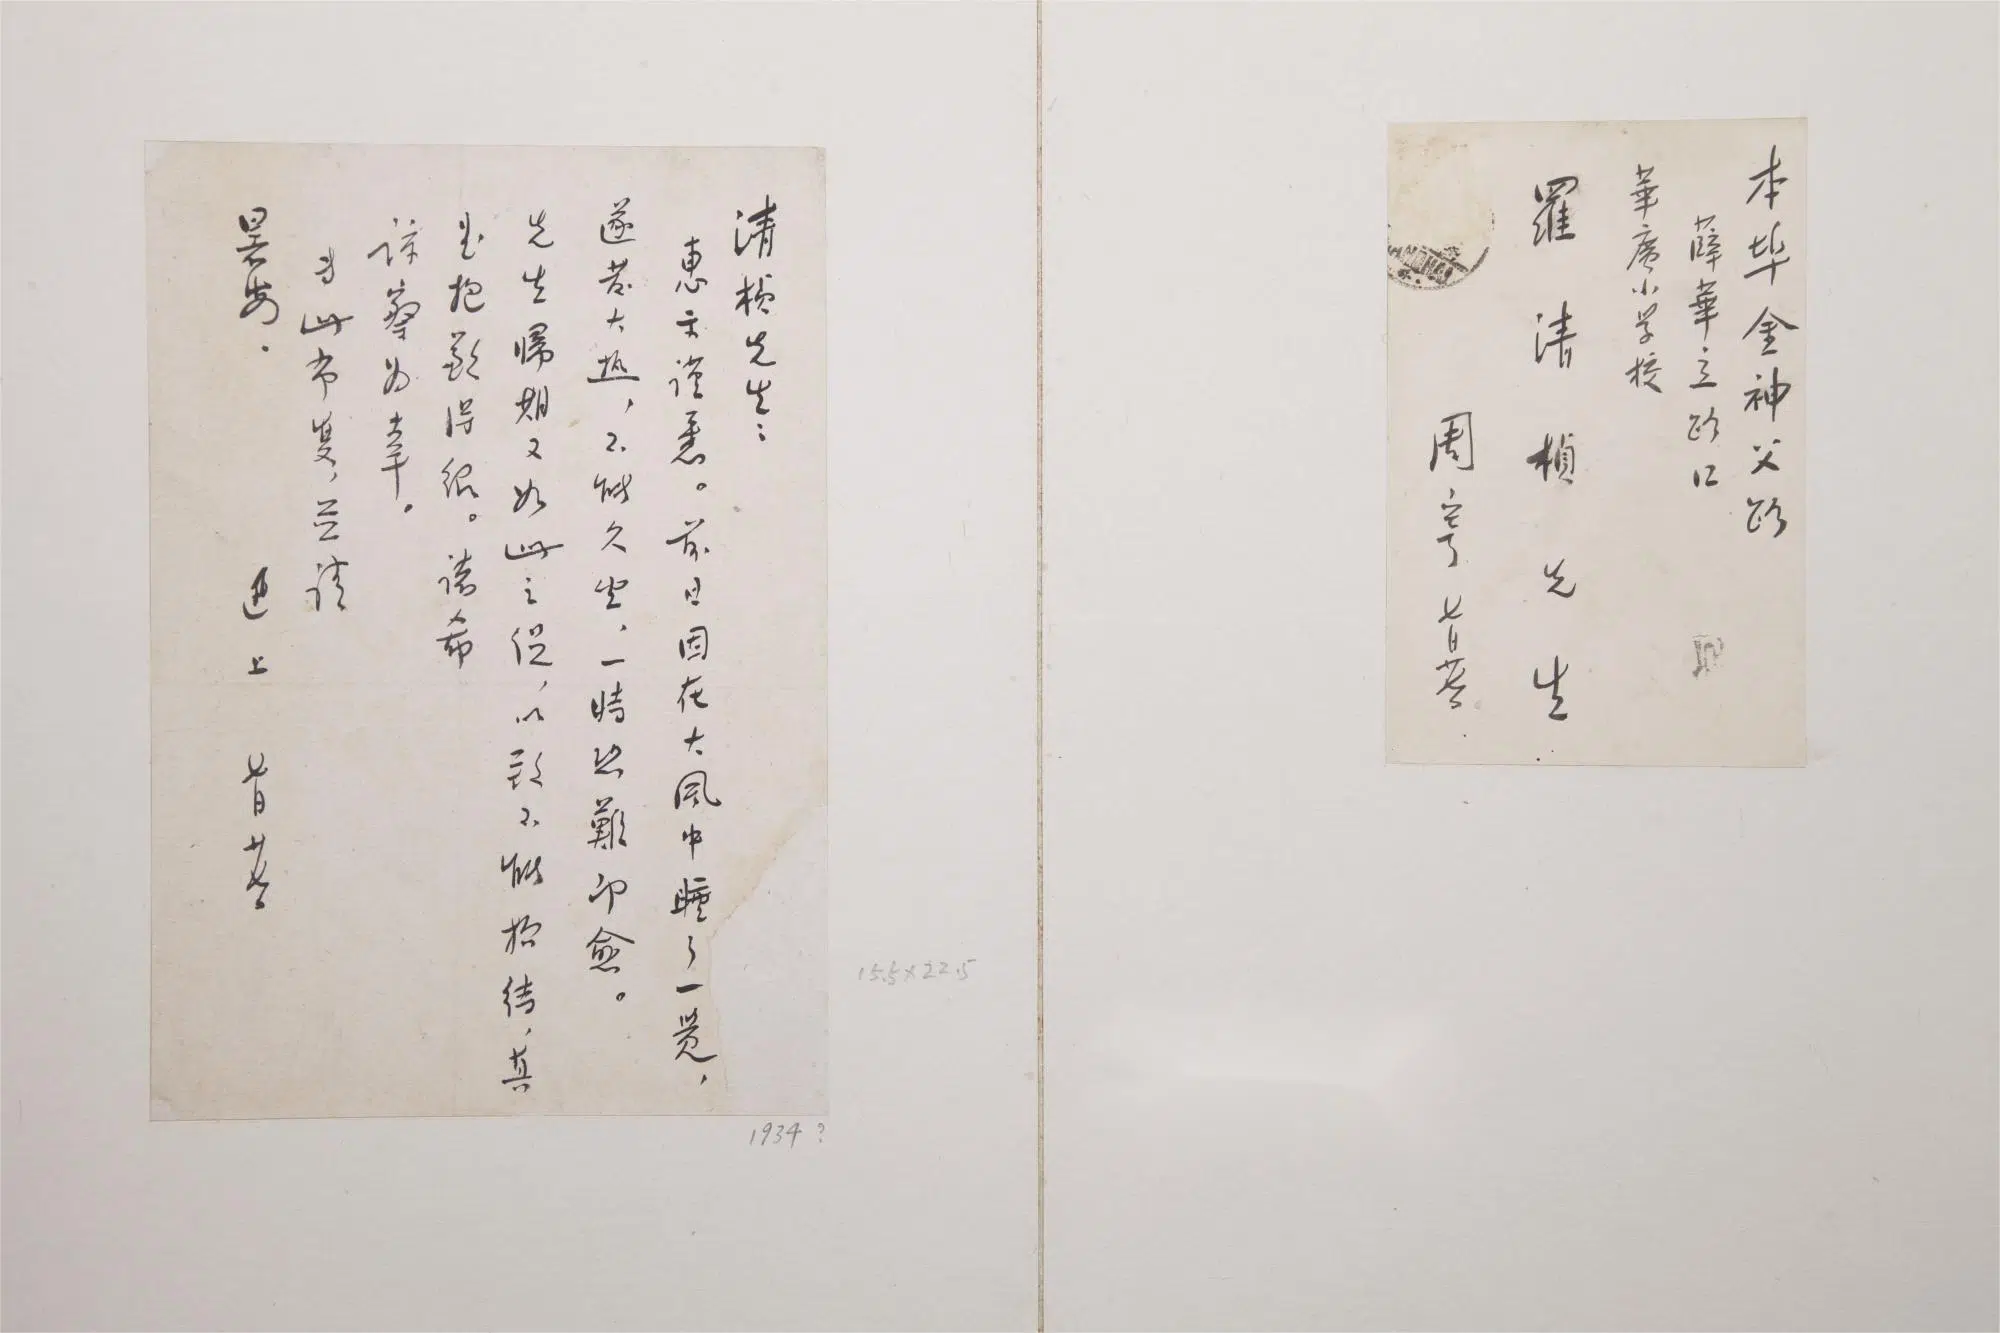 本埠金神父路
薛華立路口
華廣小学校
羅清楨先生
周寄 七月廿七日
清楨先生：
惠示谨悉。前日因在大風中睡了一覺，
遂發大热，不能久坐，一時恐難即愈。
先生歸期又如此之促，以致不能招待，真
是抱歉得很。諸希
諒察为幸。
专此布复，並請
暑安。
迅 上 七月廿七日
15.5×22.5
1934？